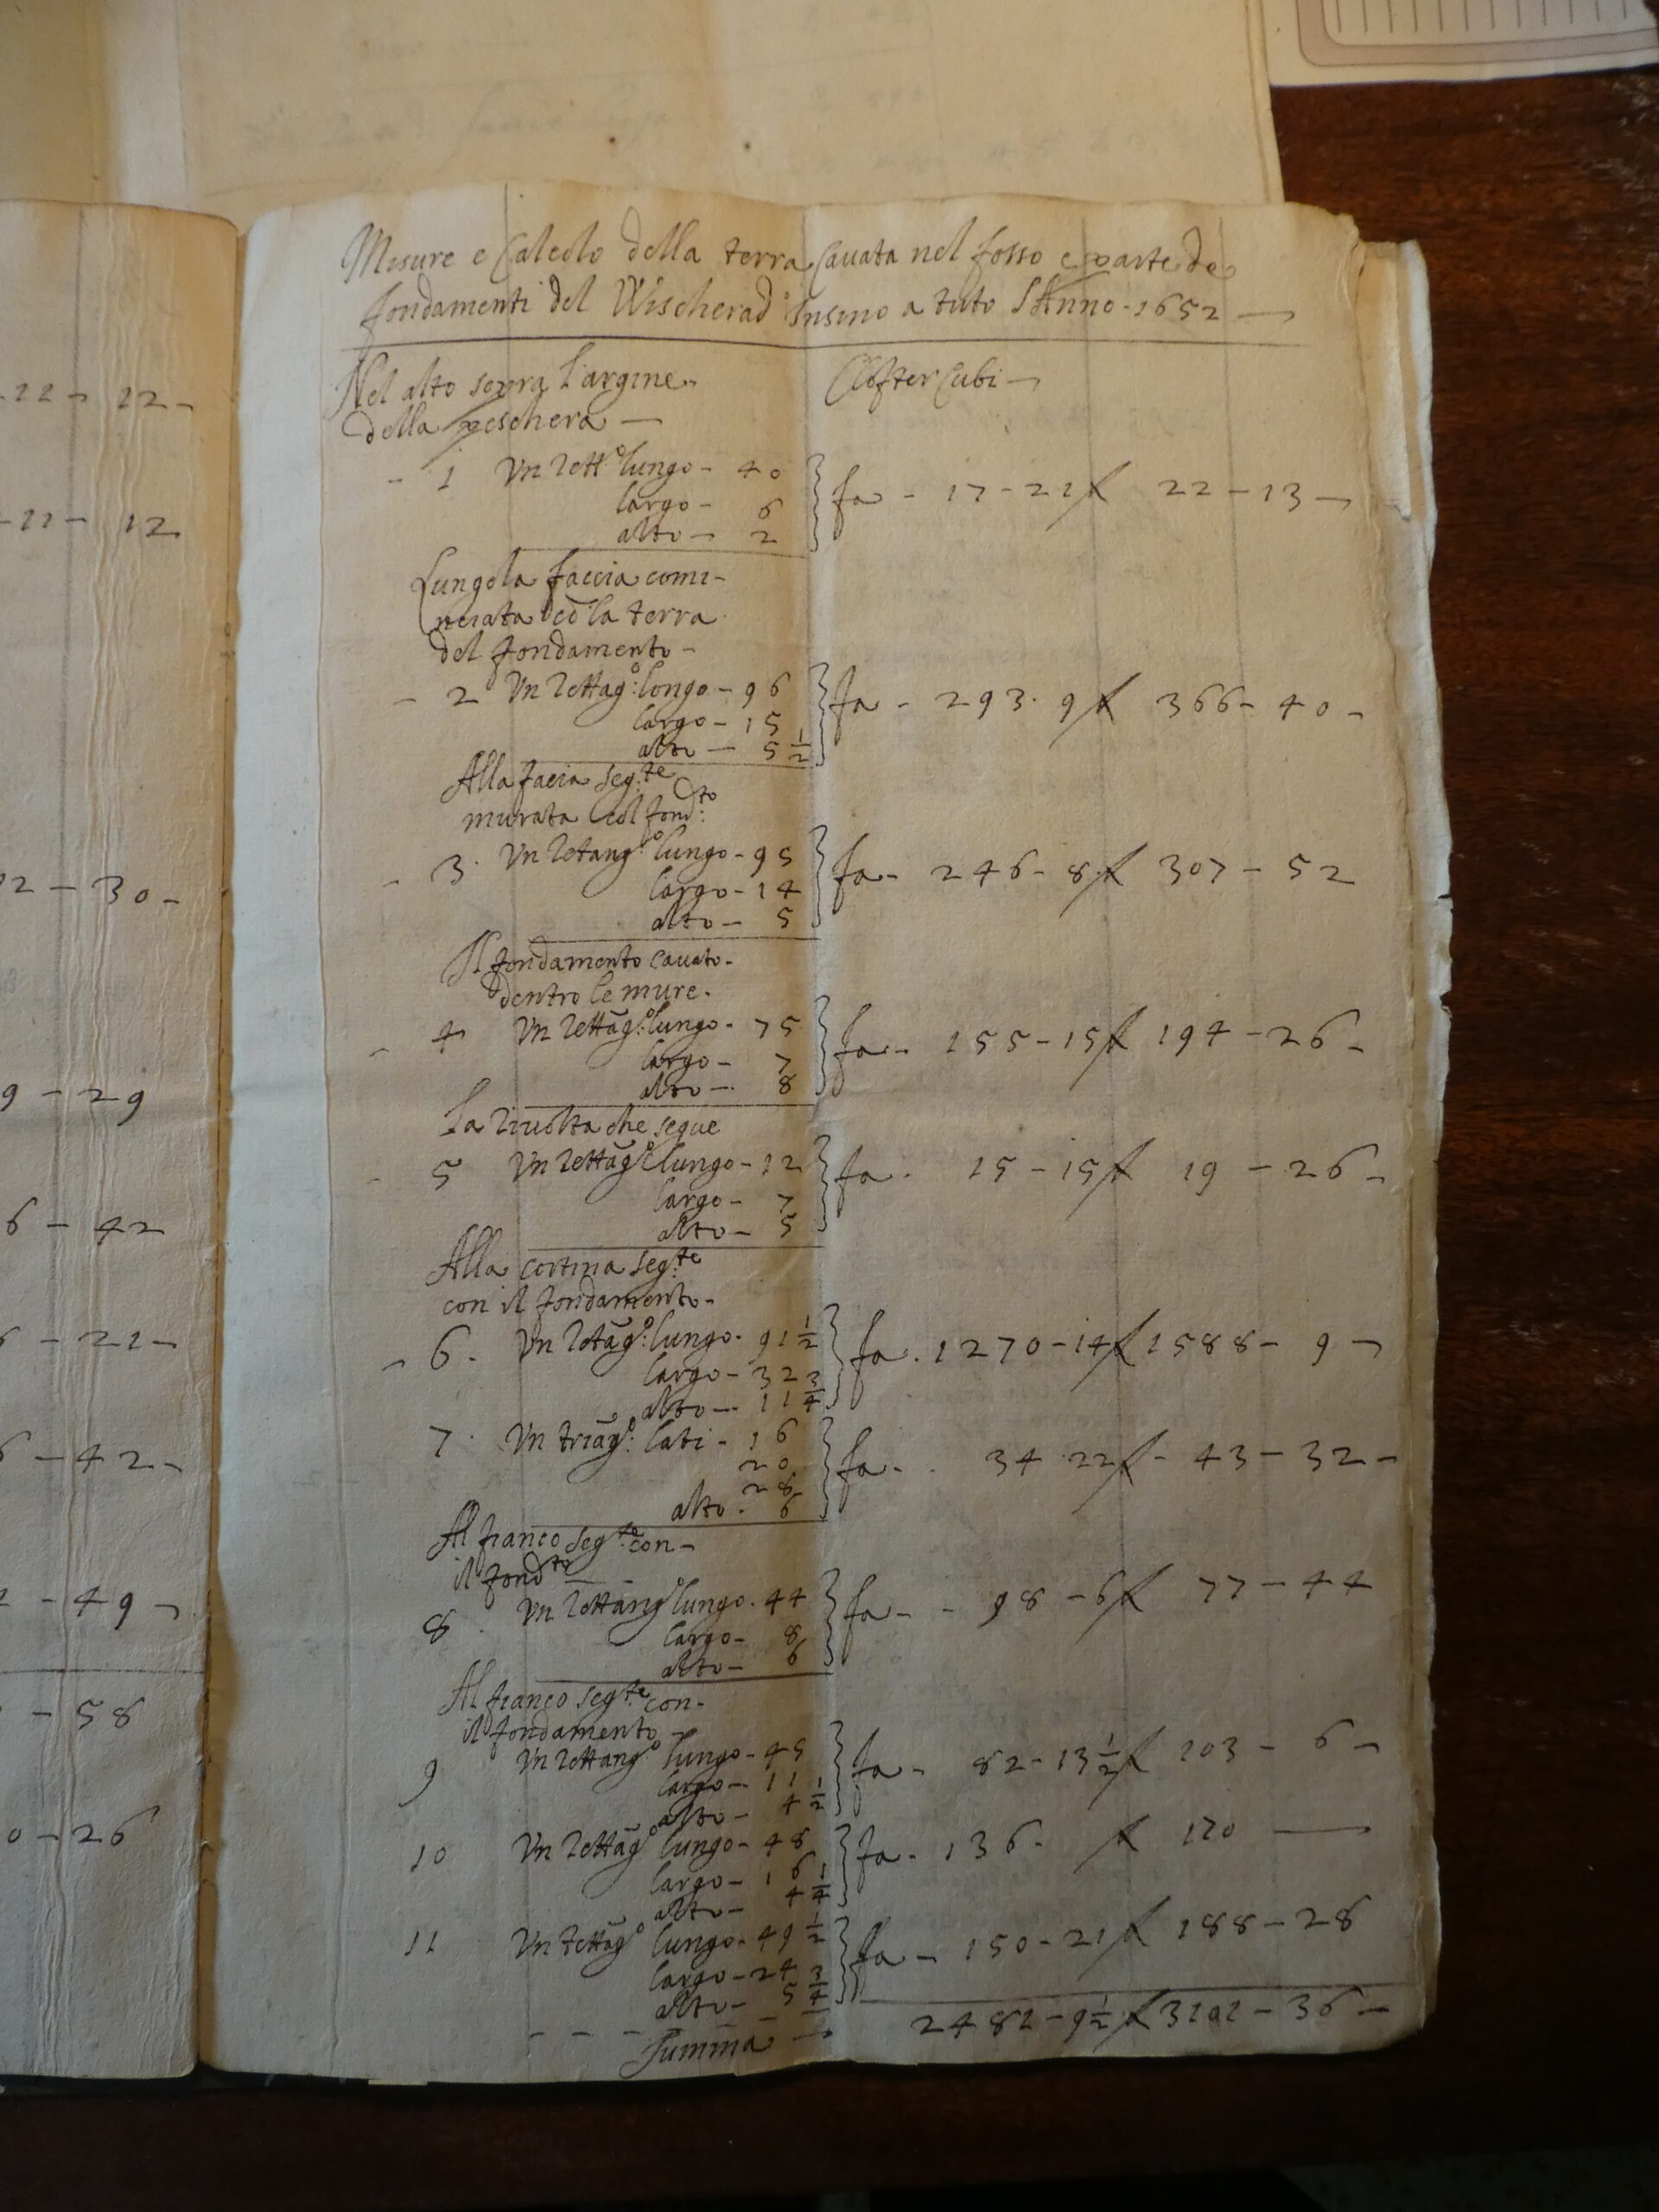 Mesure e Calcolo della terra Cavata nel fosso e parte de
fondamenti del Wischerad Insino a tuto l'Anno - 1652 —
Nel alto sopra l'argine
della peschera —
Clofter Cubi —
- 1 Un rett.o lungo - 40
largo - 6
alto - 2
fa - 17 - 21 f 22 - 13 -
Lungo la faccia comi-
nciata cō la terra
del fondamento -
- 2 Un rettag.o longo - 96
largo - 15
alto - 5 1/2
fa - 293 . 9 f 366 - 40 -
Alla facia seg.te
murata col fond.to
- 3 . Un retang.o lungo - 95
largo - 14
alto - 5
fa - 246 - 8 f 307 - 52
Il fondamento cauato -
dentro le mure .
- 4 Un rettāg.o lungo - 75
largo - 7
alto - 8
fa - 155 - 15 f 194 - 26 -
La rivolta che segue
- 5 Un rettāg.o lungo - 12
largo - 7
alto - 5
fa . 15 - 15 f 19 - 26 -
Alla cortina seg.te
con il fondamento -
- 6 - Un retāg.o lungo . 91 1/2
largo - 32 3/4
alto - 11
fa . 1270 - 14 f 1588 - 9 -
7 . Un triāg.o lati - 16
20
28
alto . 6
fa - . 34 22 f - 43 - 32 -
Al fianco seg.te con -
il fond.to —
8 . Un rettāng.o lungo . 44
largo - 8
alto - 6
fa - - 98 - 6 f 77 - 44
Al fianco seg.te con -
il fondamento -
9 Un rettang.o lungo - 45
largo - 11
alto - 4 1/2
fa - 82 - 13 1/2 f 103 - 6 -
10 Un rettāg.o lungo - 48
largo - 16
alto - 4 1/4
fa . 136 - f 170 —
11 Un rettāg.o lungo - 49 1/2
largo - 24
alto - 5 3/4
fa - 150 - 21 f 188 - 28
Summa — 2482 - 9 1/2 f 3101 - 36 -
22 - 12 -
11 - 12
2 - 30 -
9 - 29
6 - 42
- 21 -
6 - 42 -
- 49 -
- 58
0 - 26